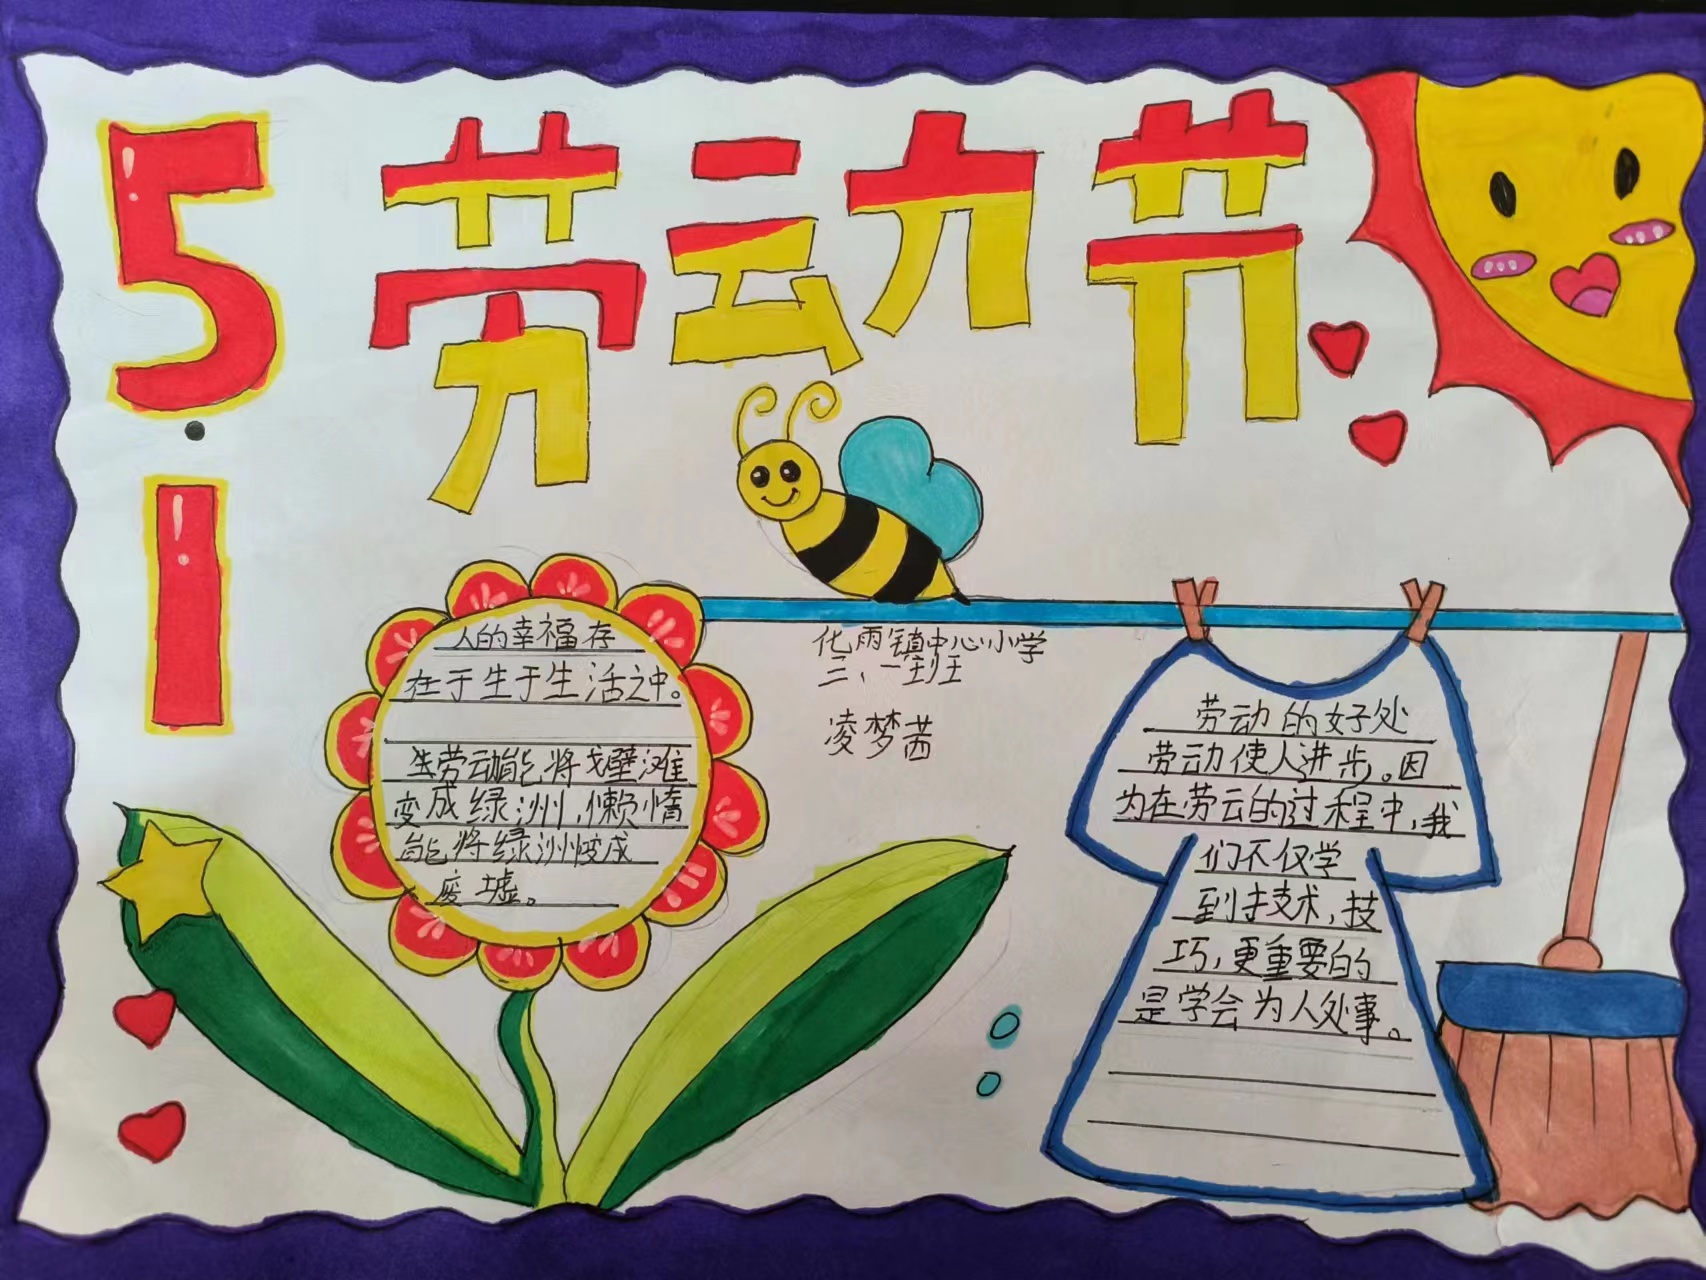 5·1
劳动节
人的幸福存
在于生于生活之中。
生劳动能将戈壁滩
变成绿洲,懒惰
能将绿洲变成
废墟。
化雨镇中心小学
三、一班
凌梦茜
劳动的好处
劳动使人进步。因
为在劳云的过程中,我
们不仅学
到技术,技
巧,更重要的
是学会为人处事。